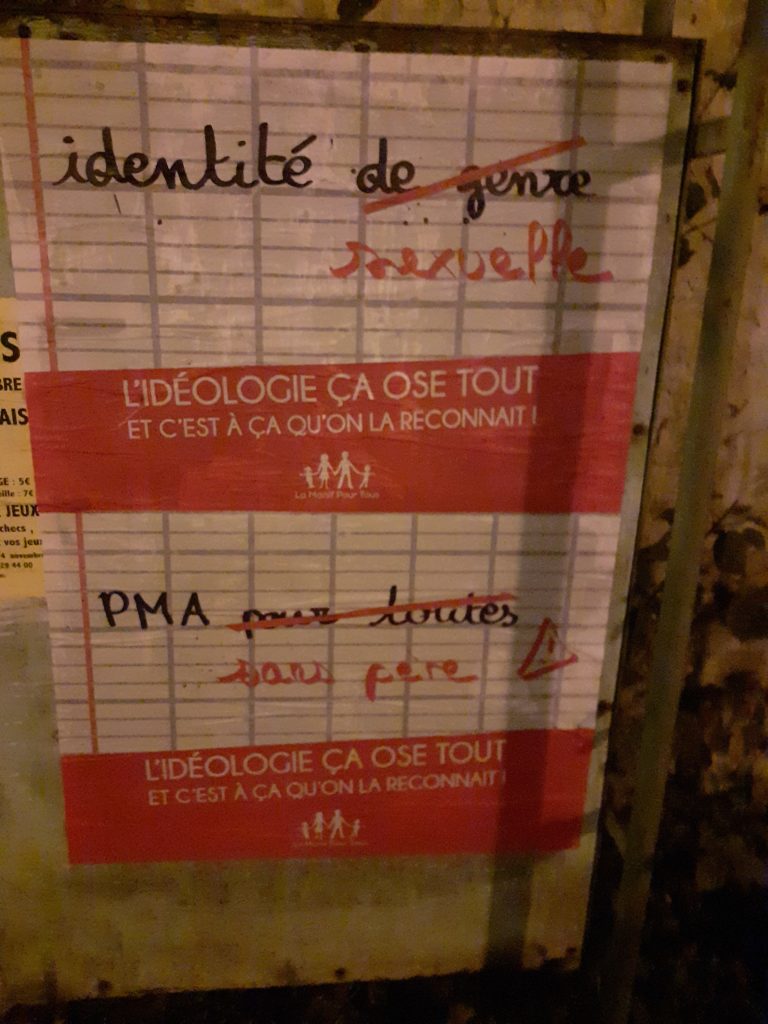 identité de genre
sexuelle
L'IDÉOLOGIE ÇA OSE TOUT
ET C'EST À ÇA QU'ON LA RECONNAIT !
La Manif Pour Tous
PMA pour toutes
sans père
L'IDÉOLOGIE ÇA OSE TOUT
ET C'EST À ÇA QU'ON LA RECONNAIT !
La Manif Pour Tous
S
BRE
AIS
GE : 5€
ille : 7€
JEUX
checs ,
vos jeux
4 novembre
29 44 00